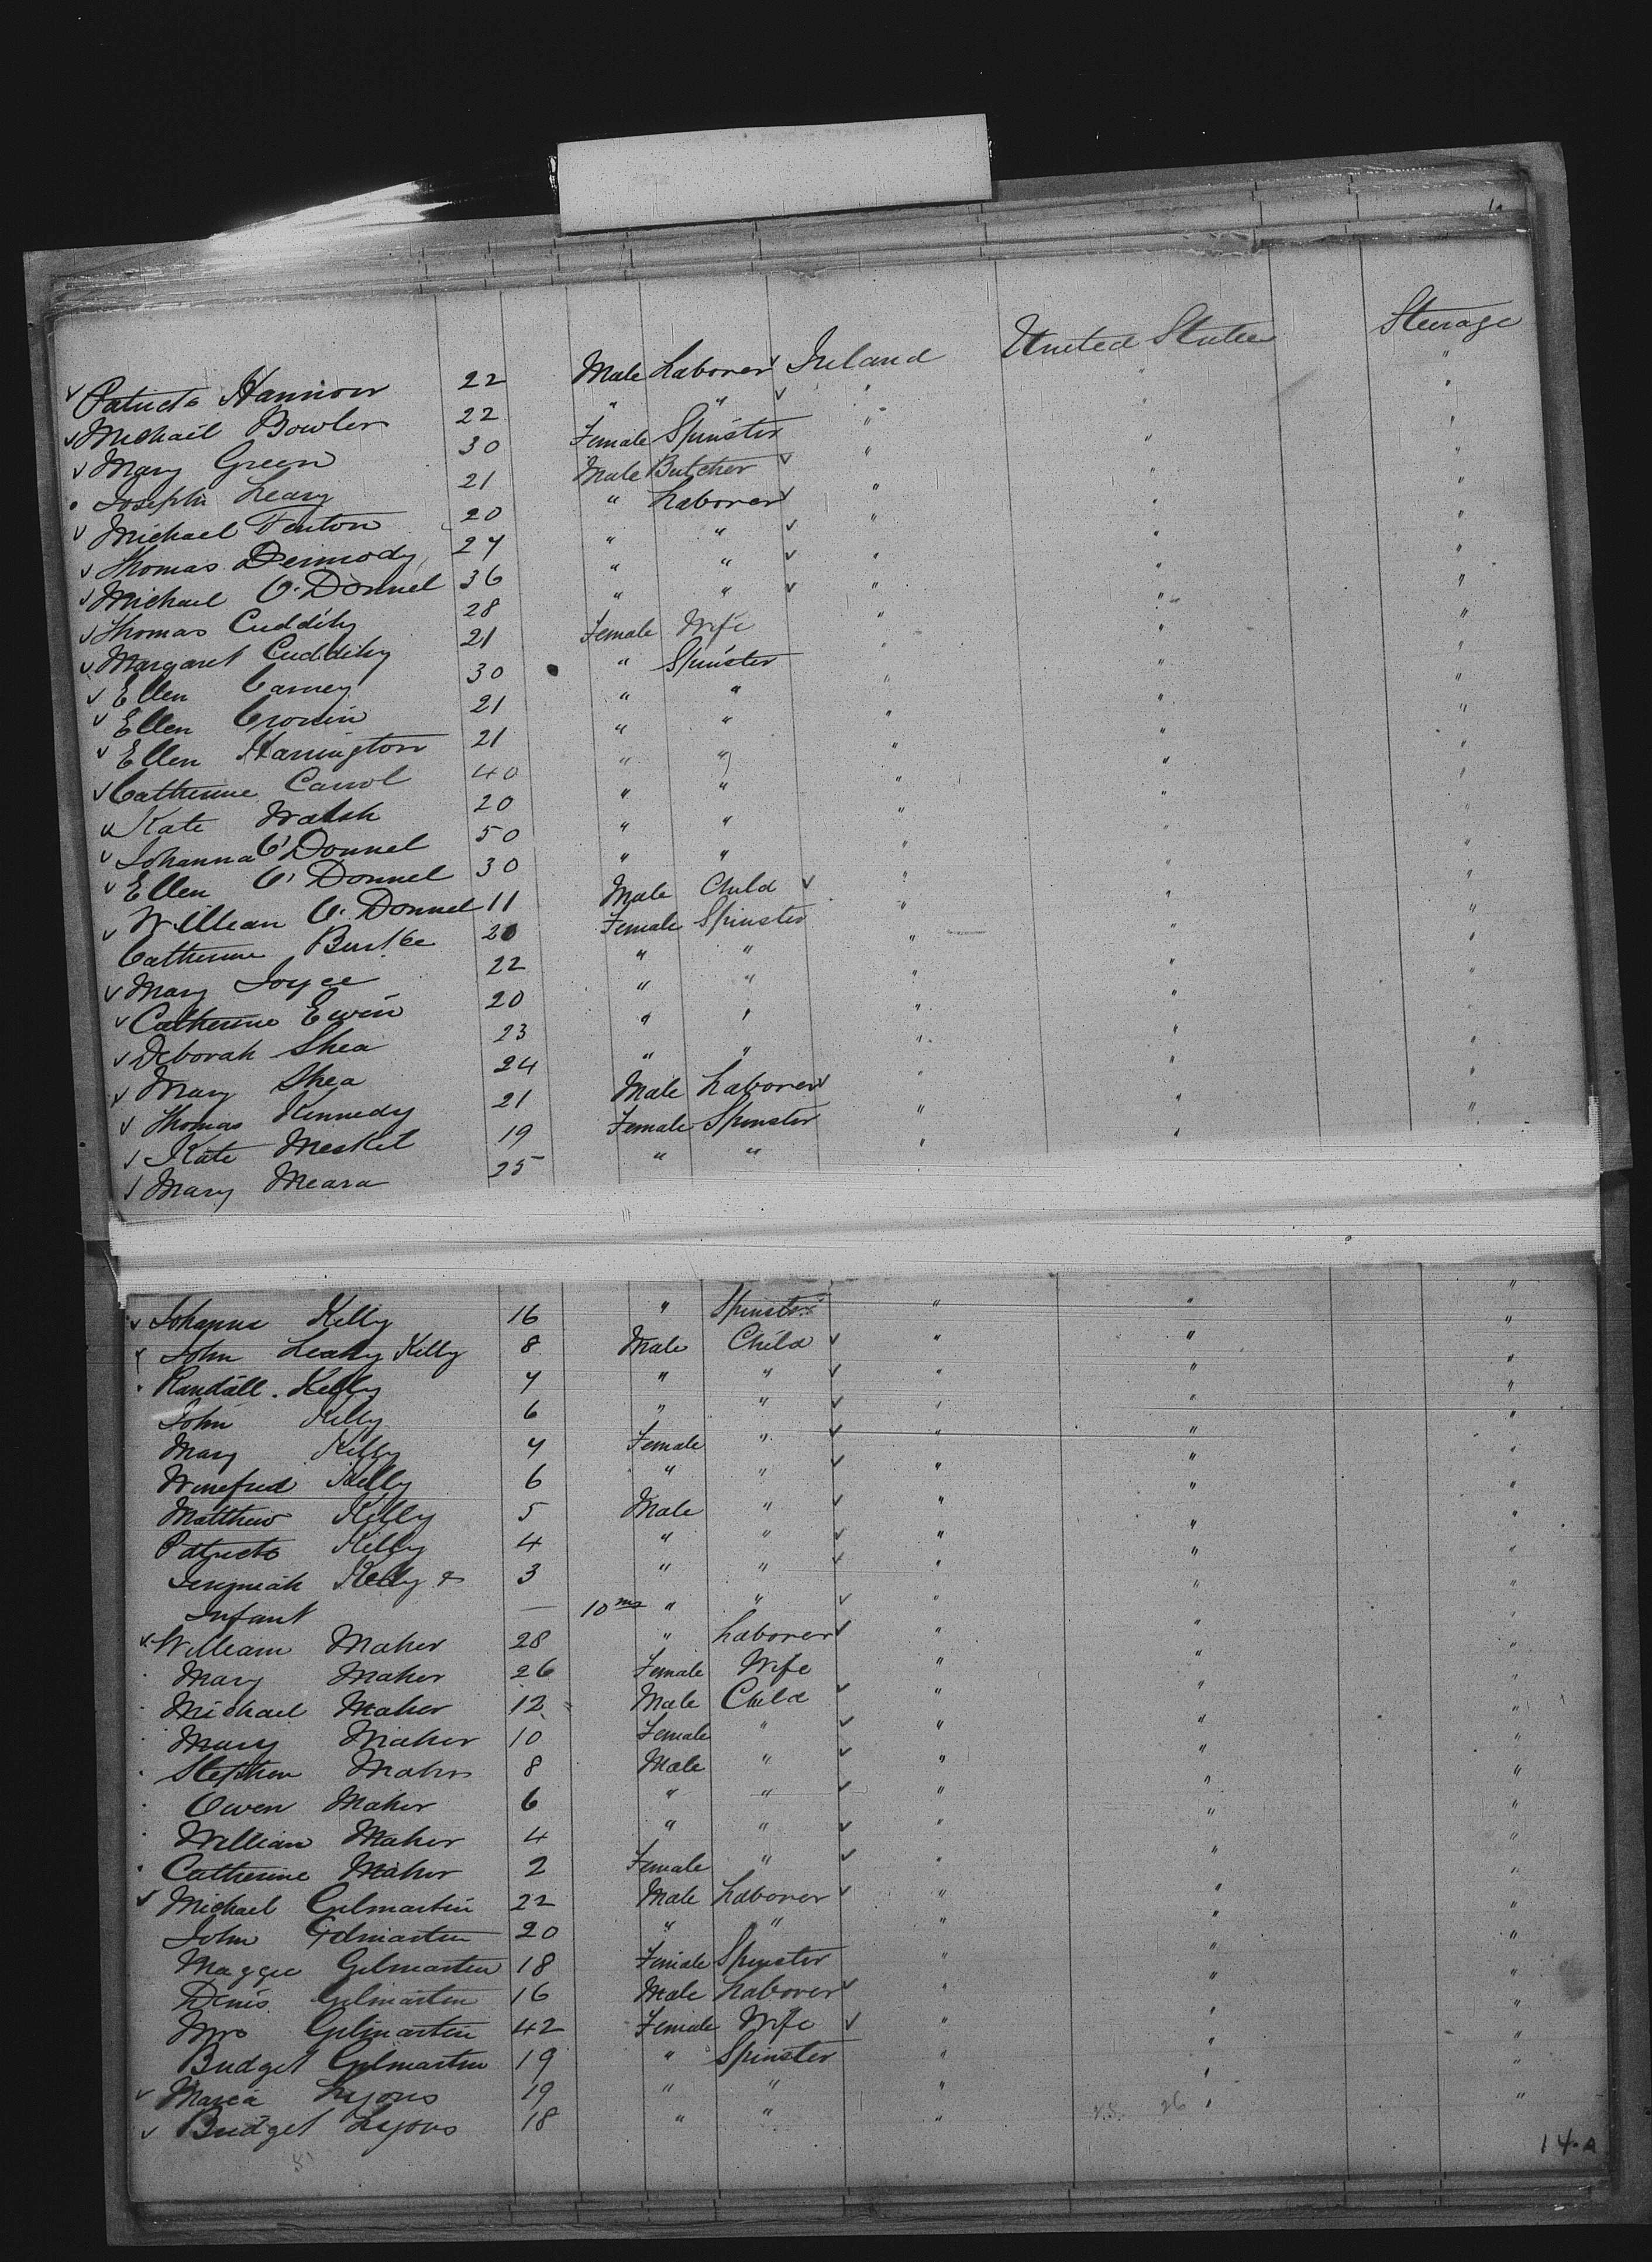 Patrick Hannon 22 Male Laborer Ireland United States Steerage
Michael Bowler 22 " " " " "
Mary Green 30 Female Spinster " " "
Joseph Leary 21 Male Butcher " " "
Michael Fenton 20 " Laborer " " "
Thomas Dermody 27 " " " " "
Michael O'Donnel 36 " " " " "
Thomas Cuddihy 28 " " " " "
Margaret Cuddihy 21 Female Wife " " "
Ellen Carney 30 " Spinster " " "
Ellen Cronin 21 " " " " "
Ellen Harrington 21 " " " " "
Catherine Carrol 40 " " " " "
Kate Walsh 20 " " " " "
Johanna O'Donnel 50 " " " " "
Ellen O'Donnel 30 " " " " "
William O'Donnel 11 Male Child " " "
Catherine Burke 20 Female Spinster " " "
Mary Joyce 22 " " " " "
Catherine Ewin 20 " " " " "
Deborah Shea 23 " " " " "
Mary Shea 24 " " " " "
Thomas Kennedy 21 Male Laborer " " "
Kate Meskel 19 Female Spinster " " "
Mary Meara 25 " " " "
Johanna Kelly 16 " Spinster " " "
John Leahy Kelly 8 Male Child " " "
Randall Kelly 7 " " " " "
John Kelly 6 " " " " "
Mary Kelly 7 Female " " " "
Winefred Kelly 6 " " " " "
Matthew Kelly 5 Male " " " "
Patrick Kelly 4 " " " " "
Jeremiah Kelly & 3 " " " " "
Infant — 10 ms " " " " "
William Maher 28 " Laborer " " "
Mary Maher 26 Female Wife " " "
Michael Maher 12 Male Child " " "
Mary Maher 10 Female " " " "
Stephen Maher 8 Male " " " "
Owen Maher 6 " " " " "
William Maher 4 " " " " "
Catherine Maher 2 Female " " " "
Michael Gilmartin 22 Male Laborer " " "
John Gilmartin 20 " " " " "
Maggie Gilmartin 18 Female Spinster " " "
Denis Gilmartin 16 Male Laborer " " "
Mrs Gilmartin 42 Female Wife " " "
Bridget Gilmartin 19 " Spinster " " "
Maria Lyons 19 " " " " "
Bridget Lyons 18 " " " " "
14-A